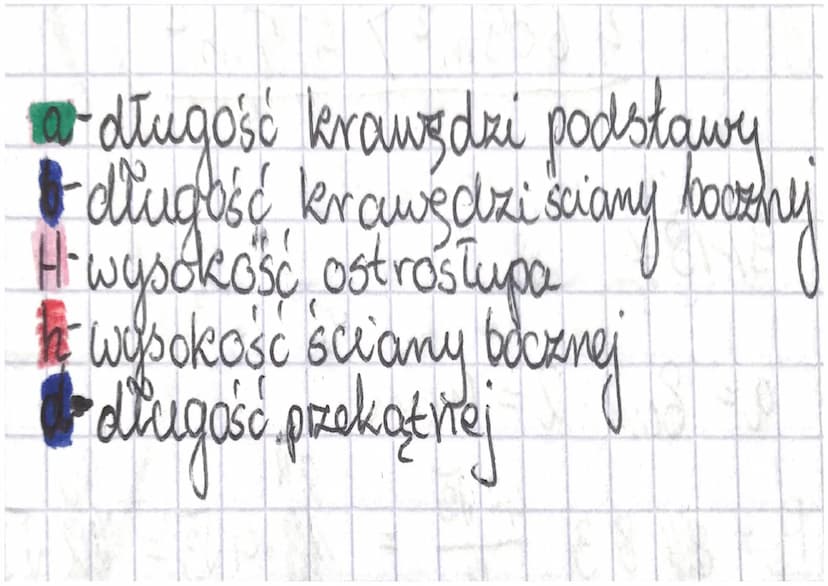 a - długość krawędzi podstawy
b - długość krawędzi ściany bocznej
H - wysokość ostrosłupa
h - wysokość ściany bocznej
d - długość przekątnej